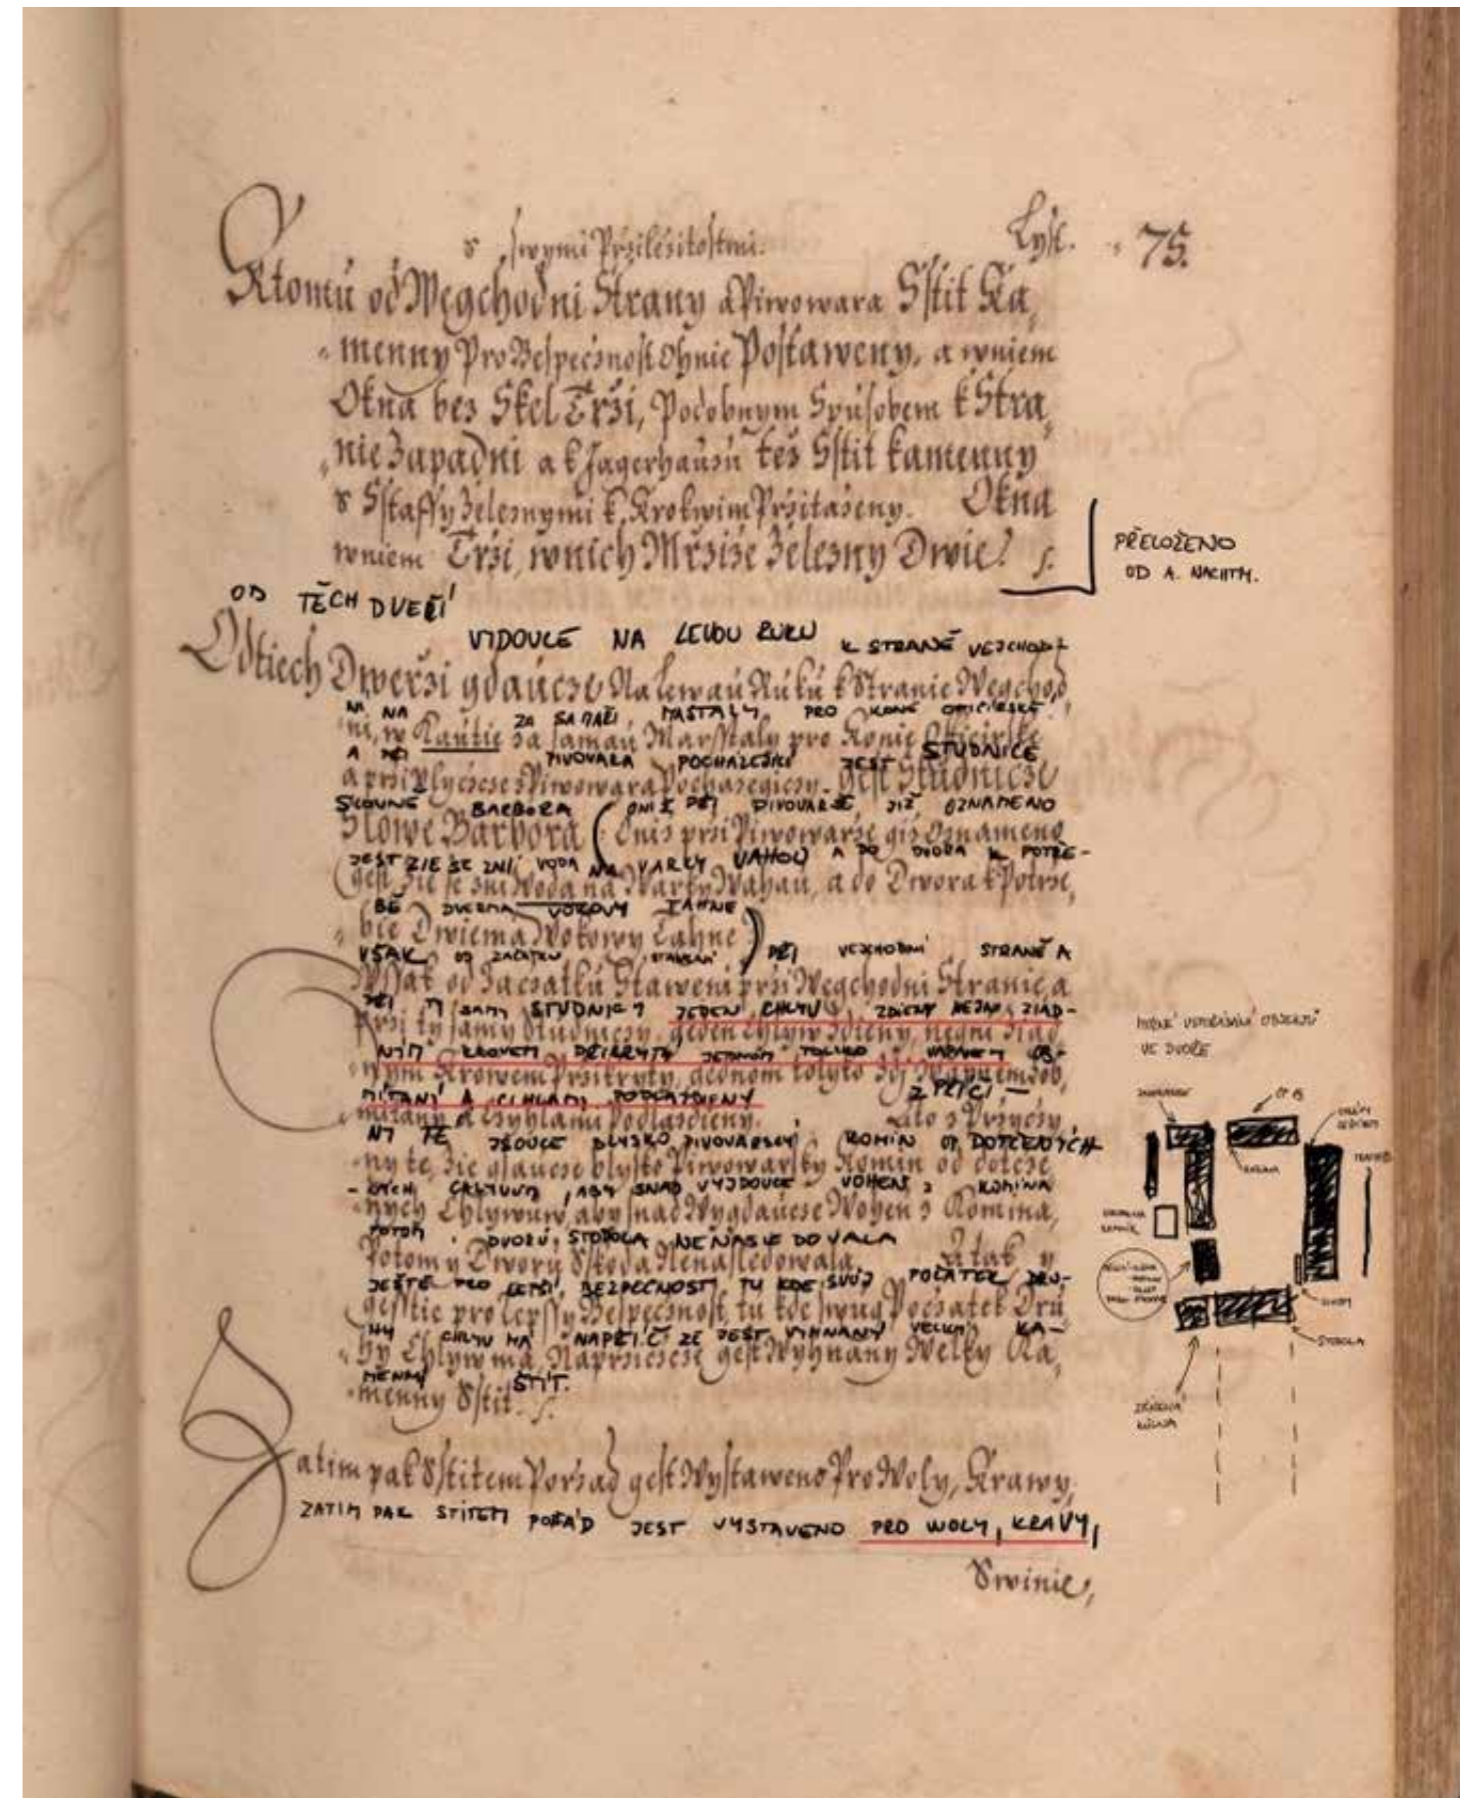 s swymi Przilezitostmi. Lyst. 75.
Ktomu od Wegchodni Strany a Piwowara Sstit Ka,
menny Pro Bespecznost Ohnie Postaweny, a wniem
Okna bez Skel Trži, Podobnym Spusobem k Stra,
nie Zapadni a k Jagerhausu tež Sstit kamenny
s Sstaffy Zeleznymi k Krokwim Przitazeny. Okna
wniem Trži, wnich Mržiže Zelezny Dwie.
PŘELOŽENO
OD A. NACHTM.
OD TĚCH DVEŘÍ
VJDOUCE NA LEVOU RUKU K STRANĚ VEJCHOD-
Odtiech Dwerži gdaucze Na lewau Ruku k Stranie Wegchod,
NÍ NA ZA SAMAŘI MAŠTALY, PRO KONĚ OFICÍRSKÉ
ni, w Kautie za samau Marsstaly pro Konie Officirske
A PŘI PIVOVARA POCHÁZEJÍCÍ JEST STUDNICE
a przi Plyczcze z Piwowara Pochazegiczy. Gest Studnicze
SLOUNE BARBORA (ONIŽ PŘI PIVOVAŘE, JIŽ OZNAMENO
Slowe Barbora (Oniz przi Piwowarze giz Oznameno
JEST ZIE SE ZNÍ VODA NA VARKY VAHOU A DO DVORA K POTŘE-
gest, zie se zni Woda na Warky Wahau, a do Dwora k Potrze,
BĚ DVĚMA VOKOVY TÁHNE)
bie Dwiema Wokowy Tahne)
VŠAK OD ZAČÁTKU STAVENÍ PŘI VEJCHODNÍ STRANĚ A
Wssak od Zaczatku Staweni przi Wegchodni Stranie, a
PŘI TÝ SAMÝ STUDNICI JEDEN CHLYV, ZDIENY NEJNÍ ŽIAD-
Przi ty samy Studniczy, geden Chlyw Zdieny, negni žiad
NÝM KROVEM PŘIKRYTÝ JEDNOM TOLIKO VAPNEM OB-
nym Krowem Przikryty, Gednom tolyko Wapnem Ob,
MÍTANÍ A CIHLAMI PODLAŽDIENY Z PŘÍČI-
mitany a Czyhlami Podlazdieny. Z Przyczy
NY TÉ, JSOUCE BLYSKO PIVOVARSKY KOMÍN OD DOTČENÝCH
ny te, zie gsaucze blysko Piwowarsky Komin od dotcze
CHLYVUV, ABY SNAD VYJDOUCE VOHEŇ Z KOMÍNA
nych Chlywuw, aby snad Wygdaucze Wohen z Komina,
POTOM DVORU, STODOLA NENÁSLEDOVALA
Potom y Dworu Sskoda Nenasledowala. A tak y
JEŠTĚ PRO LEPŠÍ, BEZPEČNOST, TU KDE SVŮJ POČATEK DRU-
gesstie pro lepssy Bespecznost, tu kde swug Poczatek Dru
HÝ CHLYV MÁ NAPŘÍČ ZE JEST VYHNANÝ VELKÝ KA-
hy Chlyw ma, Naprzicze gest Wyhnany Welky Ka,
MENNÝ ŠTÍT.
menny Sstit.
Zatim pak Sstitem Porzad gest Wystaweno Pro Woly, Krawy,
ZATIM PAK STÍTEM POŘÁD JEST VYSTAVENO PRO WOLY, KRAVY,
Swinie,
MOŽNÉ USPOŘÁDÁNÍ OBJEKTŮ
VE DVOŘE
STODOLA
ZDĚNÁ
KŮLNA